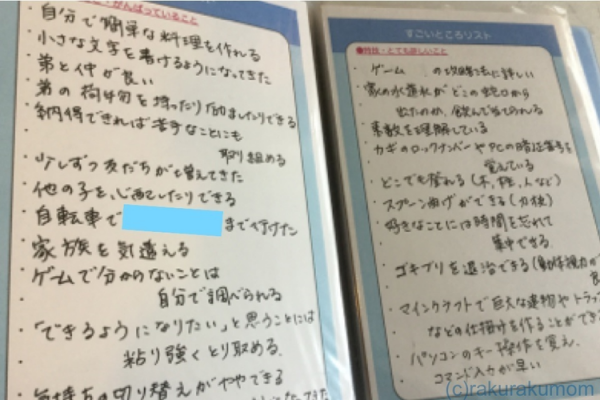 ・がんばっていること
・自分で簡単な料理を作れる
・小さな文字を書けるようになってきた
・弟と仲が良い
・弟の荷物を持ったり励ましたりできる
・納得できれば苦手なことにも
取り組める
・少しずつ友だちが増えてきた
・他の子を心配したりできる
・自転車で
まで行けた
・家族を気遣える
・ゲームで分からないことは
自分で調べられる
・「できるようになりたい」と思うことには
粘り強くとり取める。
・気持ちの切り替えがややできる
すごいところリスト
●特技・とても詳しいこと
・ゲーム の攻略法に詳しい
・家の水道水がどこの蛇口から
出たのか、飲んで当てられる
・素数を理解している
・カギのロックナンバーやPCの暗証番号を
覚えている
・どこでも登れる(木、柱、人など)
・スプーン曲げができる(力技)
・好きなことには時間を忘れて
集中できる。
・ゴキブリを退治できる(動体視力が
良
・マインクラフトで巨大な建物やトラップ
などの仕掛けを作ることができ
・パソコンのキー操作を覚え、
コマンド入力が早い
(c)rakurakumom